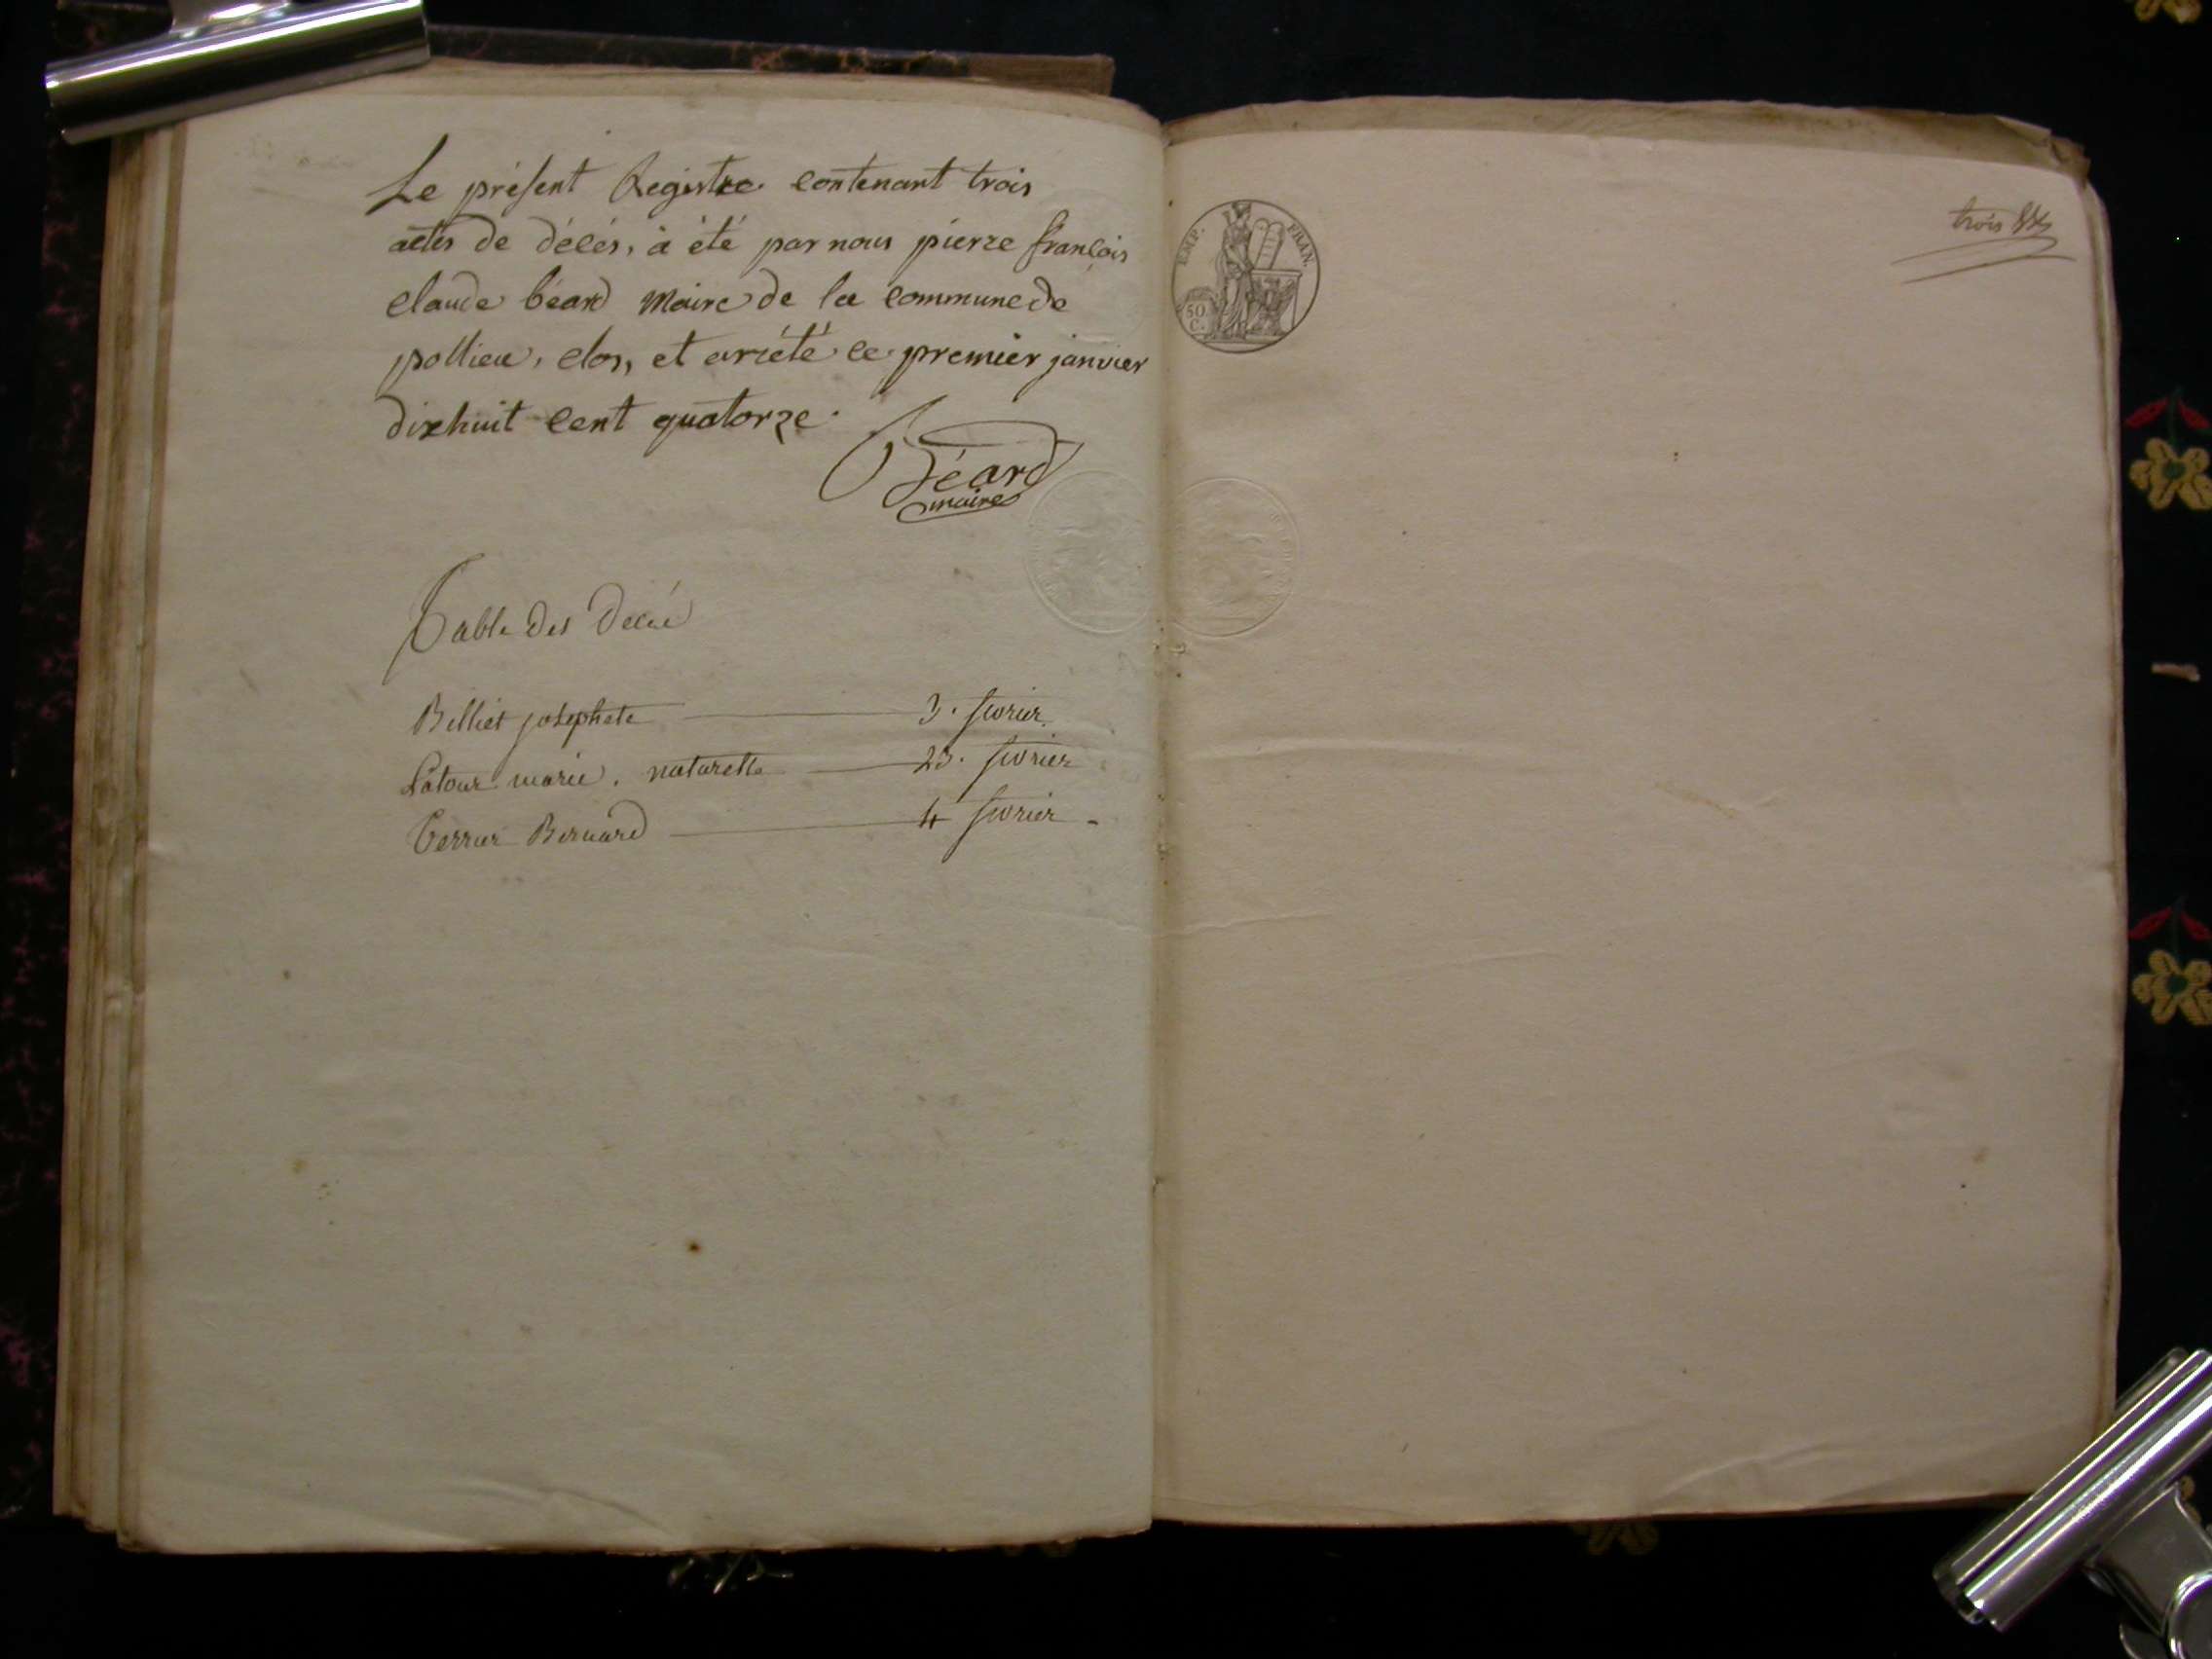 Le présent Registre contenant trois
actes de décés, à été par nous pierre françois
claude béard Maire de la commune de
pollieu, clos, et arrété ce premier janvier
dixhuit cent quatorze.
Béard
maire
Table des Décés
Billiet josephete 3. fevrier
Latour marie. naturelle 23. fevrier
Terrier Bernard 4 fevrier
EMP. FRAN.
50
C.
trois